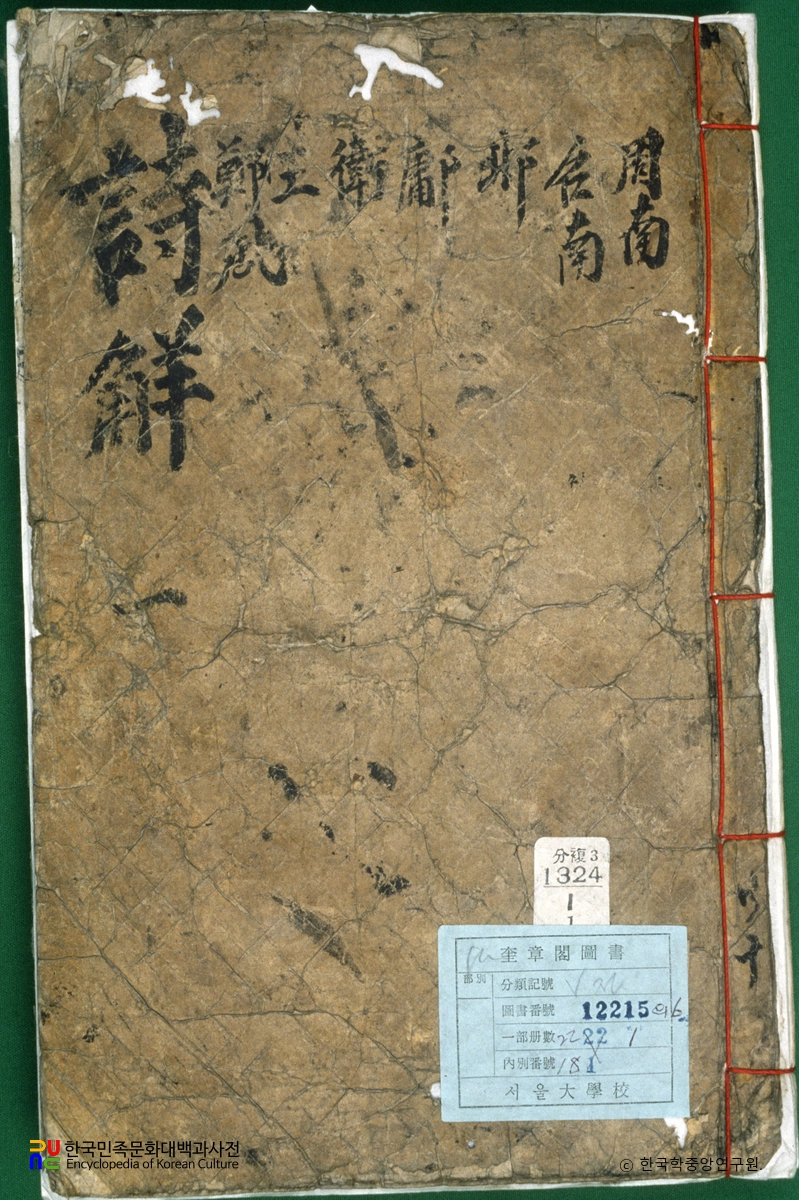 周南
召南
邶
鄘
衛
王
鄭風
詩解
一
分複3
1324
1
1
奎章閣圖書
部別
分類記號
圖書番號 12215
一部册數 22 1
內別番號 181
서울大學校
한국민족문화대백과사전
Encyclopedia of Korean Culture
© 한국학중앙연구원